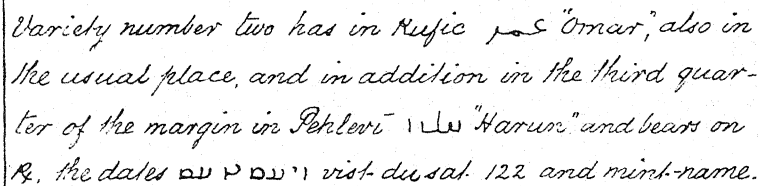 Variety number two has in Kufic عمر "Omar", also in
the usual place, and in addition in the third quar-
ter of the margin in Pehlevi "Harun" and bears on
℞. the dates vist du sat 122 and mint-name.